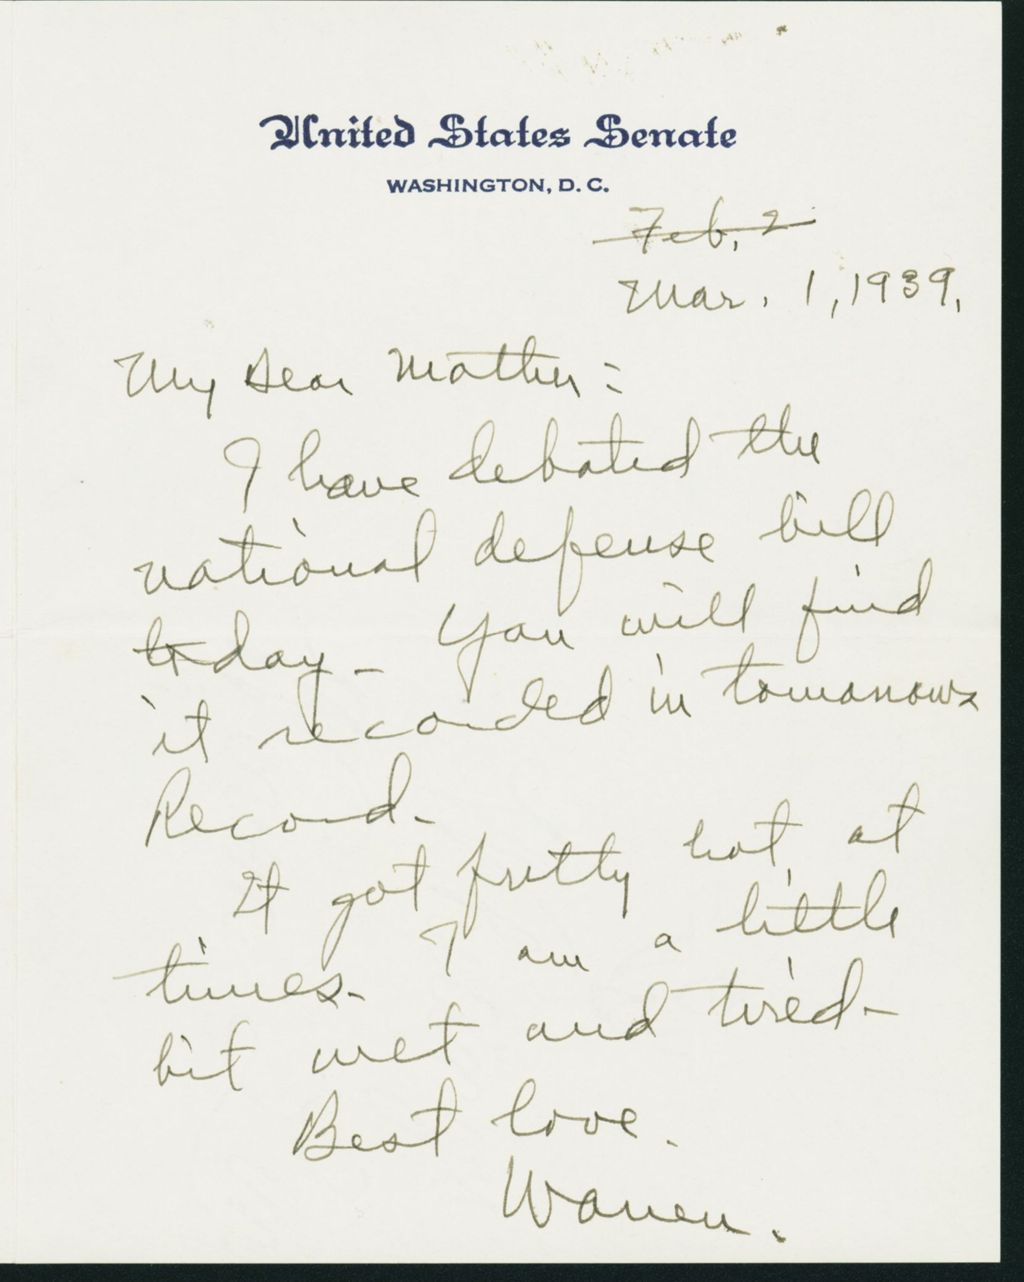 United States Senate
WASHINGTON, D. C.
Feb. 2
Mar. 1, 1939.
My Dear Mother:
I have debated the
national defense bill
today - You will find
it recorded in tomorrows
Record -
It got pretty hot, at
times - I am a little
bit wet and tired -
Best love.
Warren.